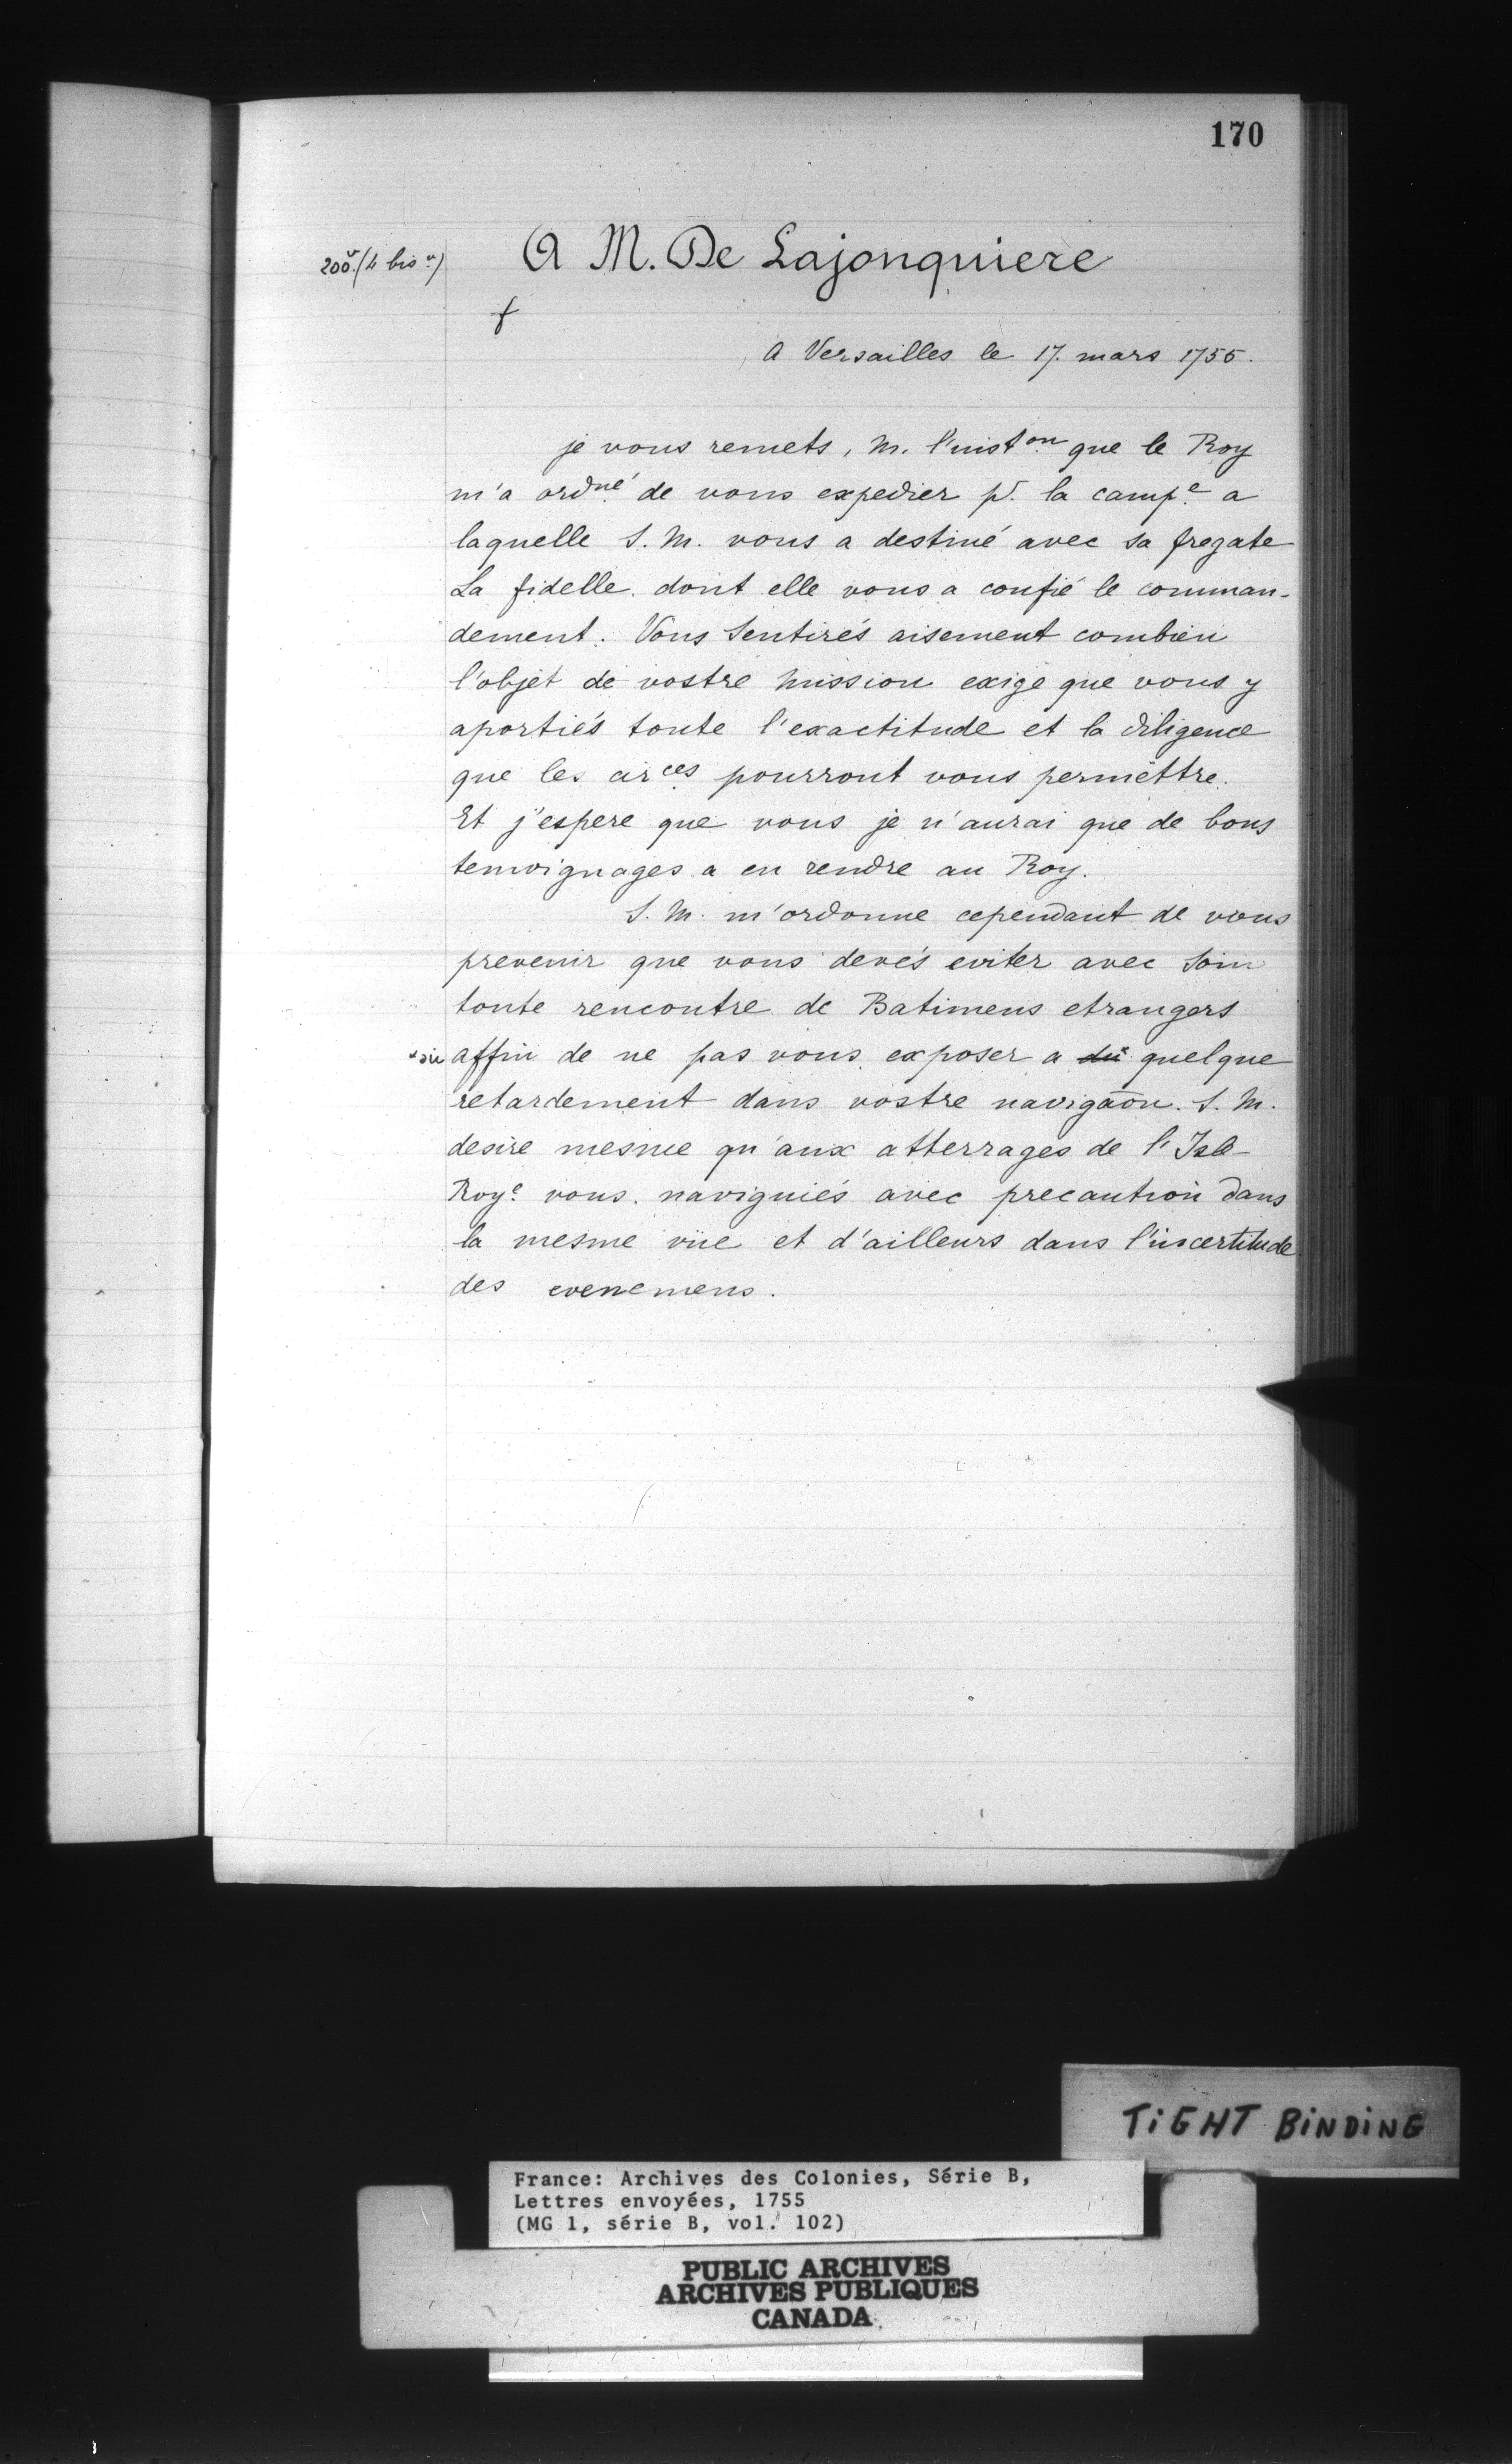 170
200.v (4 bis v)
A M. De Lajonquiere
A Versailles le 17. mars 1755.
je vous remets, M. l'inston que le Roy
m'a ordné de vous expedier pr. la campe a
laquelle S. M. vous a destiné avec sa fregate
La fidelle. dont elle vous a confié le comman-
dement. Vous Sentirés aisement combien
l'objet de vostre mission exige que vous y
aportiés toute l'exactitude et la diligence
que les circes pourront vous permettre.
Et j'espere que vous je n'aurai que de bons
temoignages a en rendre au Roy.
S. M. m'ordonne cependant de vous
prevenir que vous devés eviter avec Soin
toute rencontre de Batimens etrangers
affin de ne pas vous exposer a du quelque
retardement dans vostre navigaōn. S. M.
desire mesme qu'aux atterrages de l'Isle
Roye. vous naviguiés avec precaution dans
la mesme vüe et d'ailleurs dans l'incertitude
des evenemens.
TiGHT BiNDiNG
France: Archives des Colonies, Série B,
Lettres envoyées, 1755
(MG 1, série B, vol. 102)
PUBLIC ARCHIVES
ARCHIVES PUBLIQUES
CANADA